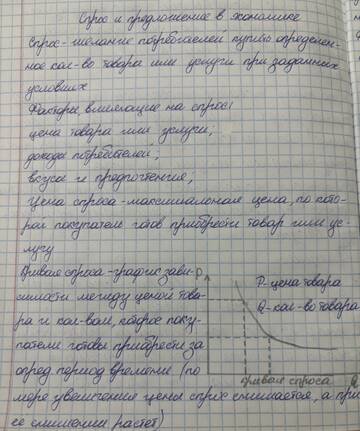 Спрос и предложение в экономике
Спрос-желание потребителей купить определен-
ное кол-во товара или услуги при заданных
условиях
Факторы, влияющие на спрос:
цена товара или услуги;
доходы потребителей;
вкусы и предпочтения;
Цена спроса-максимальная цена, по кото-
рой покупатель готов приобрести товар или ус-
лугу
Кривая спроса-график зави-
симости между ценой това-
ра и кол-вом, которое поку-
патели готовы приобрести за
опред период времени (по
мере увеличения цены спрос снижается, а при
ее снижении растет)
P
P-цена товара
Q-кол-во товара
Q
кривая спроса